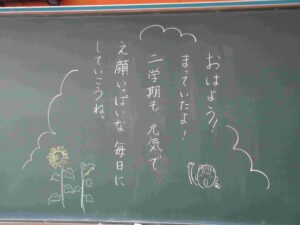 おはよう!
まっていたよ!
二学期も 元気で
え顔いっぱいな 毎日に
していこうね。